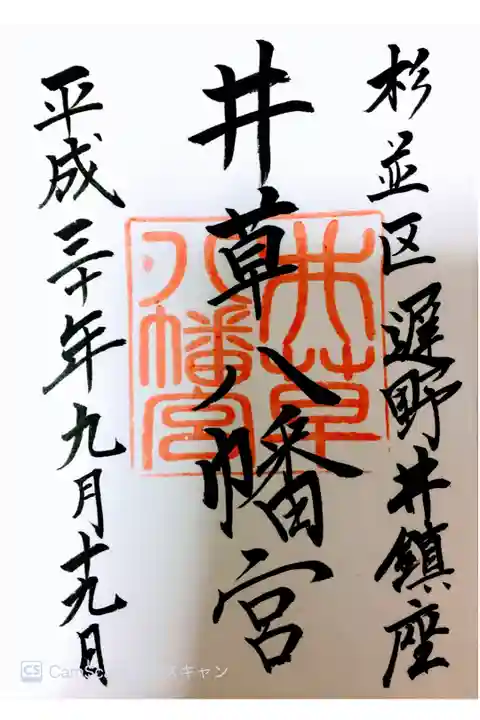 杉並区遅野井鎮座
井草八幡宮
井草
八幡宮
平成三十年九月十九日
CS CamSc スキャン